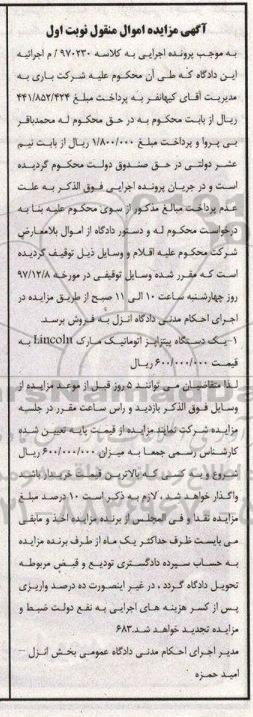 آگهی مزایده اموال منقول نوبت اول
به موجب پرونده اجرایی به کلاسه ۹۷۰۲۳۰ / م اجرائیه
این دادگاه که طی آن محکوم علیه شرکت باری به
مدیریت آقای کیهانفر به پرداخت مبلغ ۴۴۱/۸۵۲/۴۲۴
ریال از بابت محکوم به در حق محکوم له محمدباقر
بی پروا و پرداخت مبلغ ۱/۸۰۰/۰۰۰ ریال از بابت نیم
عشر دولتی در حق صندوق دولت محکوم گردیده
است و در جریان پرونده اجرایی فوق الذکر به علت
عدم پرداخت مبالغ مذکور از سوی محکوم علیه بنا به
درخواست محکوم له و دستور دادگاه از اموال بلامعارض
شرکت محکوم علیه اقلام و وسایل ذیل توقیف گردیده
است که مقرر شده وسایل توقیفی در مورخه ۹۷/۱۲/۸
روز چهارشنبه ساعت ۱۰ الی ۱۱ صبح از طریق مزایده در
اجرای احکام مدنی دادگاه انزل به فروش برسد
۱-یک دستگاه پیتزاپز اتوماتیک مارک Lincoln به
قیمت ۶۰۰/۰۰۰/۰۰۰ ریال
لذا متقاضیان می توانند ۵ روز قبل از موعد مزایده از
وسایل فوق الذکر بازدید و راس ساعت مقرر در جلسه
مزایده شرکت نمایند مزایده از قیمت پایه تعیین شده
کارشناس رسمی جمعا به میزان ۶۰۰/۰۰۰/۰۰۰ ریال
شروع و به کسی که بالاترین قیمت خریدار باشد
واگذار خواهد شد، لازم به ذکر است ۱۰ درصد مبلغ
مزایده نقد و فی المجلس از برنده مزایده اخذ و مابقی
می بایست ظرف حداکثر یک ماه از طرف برنده مزایده
به حساب سپرده دادگستری تودیع و قبض مربوطه
تحویل دادگاه گردد ، در غیر اینصورت ده درصد واریزی
پس از کسر هزینه های اجرایی به نفع دولت ضبط و
مزایده تجدید خواهد شد.۶۸۳
مدیر اجرای احکام مدنی دادگاه عمومی بخش انزل –
امید حمزه